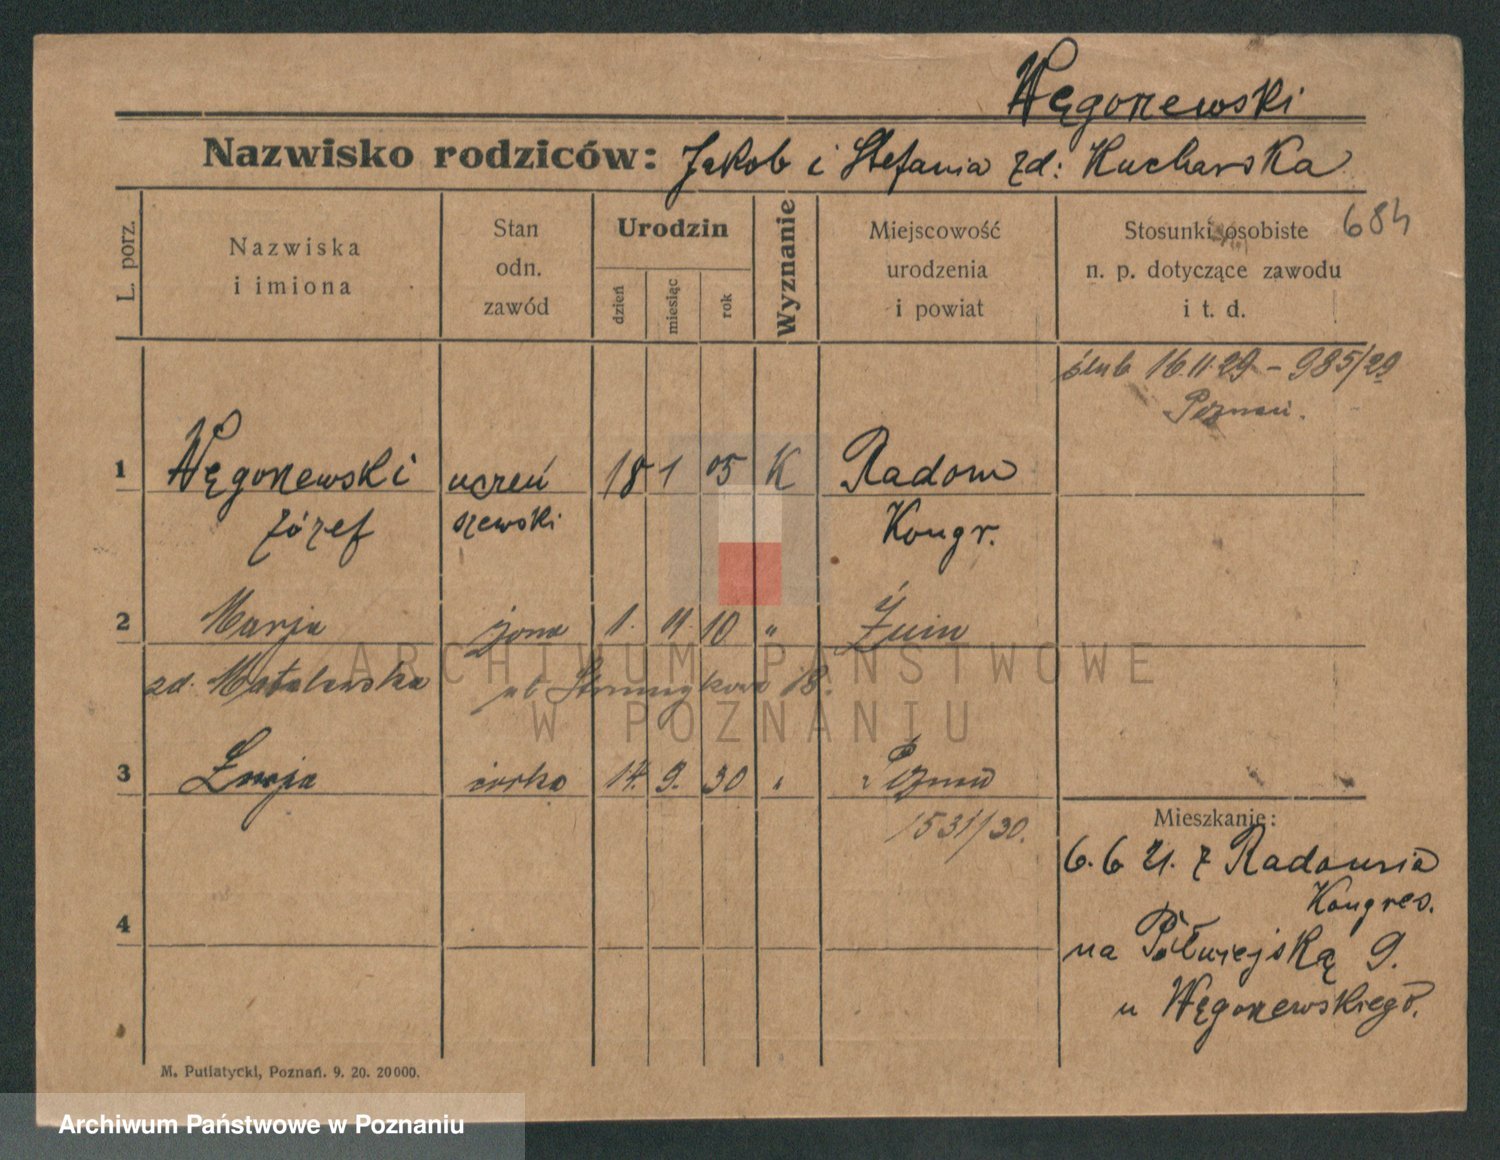 Węgorzewski
Nazwisko rodziców: Jakób i Stefania zd: Kucharska
684
L. porz.
Nazwiska
i imiona
Stan
odn.
zawód
Urodzin
dzień
miesiąc
rok
Wyznanie
Miejscowość
urodzenia
i powiat
Stosunki osobiste
n. p. dotyczące zawodu
i t. d.
ślub 16.11.29 – 985/29
Poznań.
1 Węgorzewski uczeń 18 1 05 K Radom
Józef szewski Kongr.
2 Marja żona 1. 11. 10 „ Żnin
zd. Matelewska ul. 18.
3 córka 14. 9. 30 „ Poznań
1531/30.
Mieszkanie:
6.6 21. z Radomia
Kongres.
na Półwiejską 9.
u Węgorzewskiego.
4
M. Putiatycki, Poznań. 9. 20. 20000.
ARCHIWUM PAŃSTWOWE
W POZNANIU
Archiwum Państwowe w Poznaniu